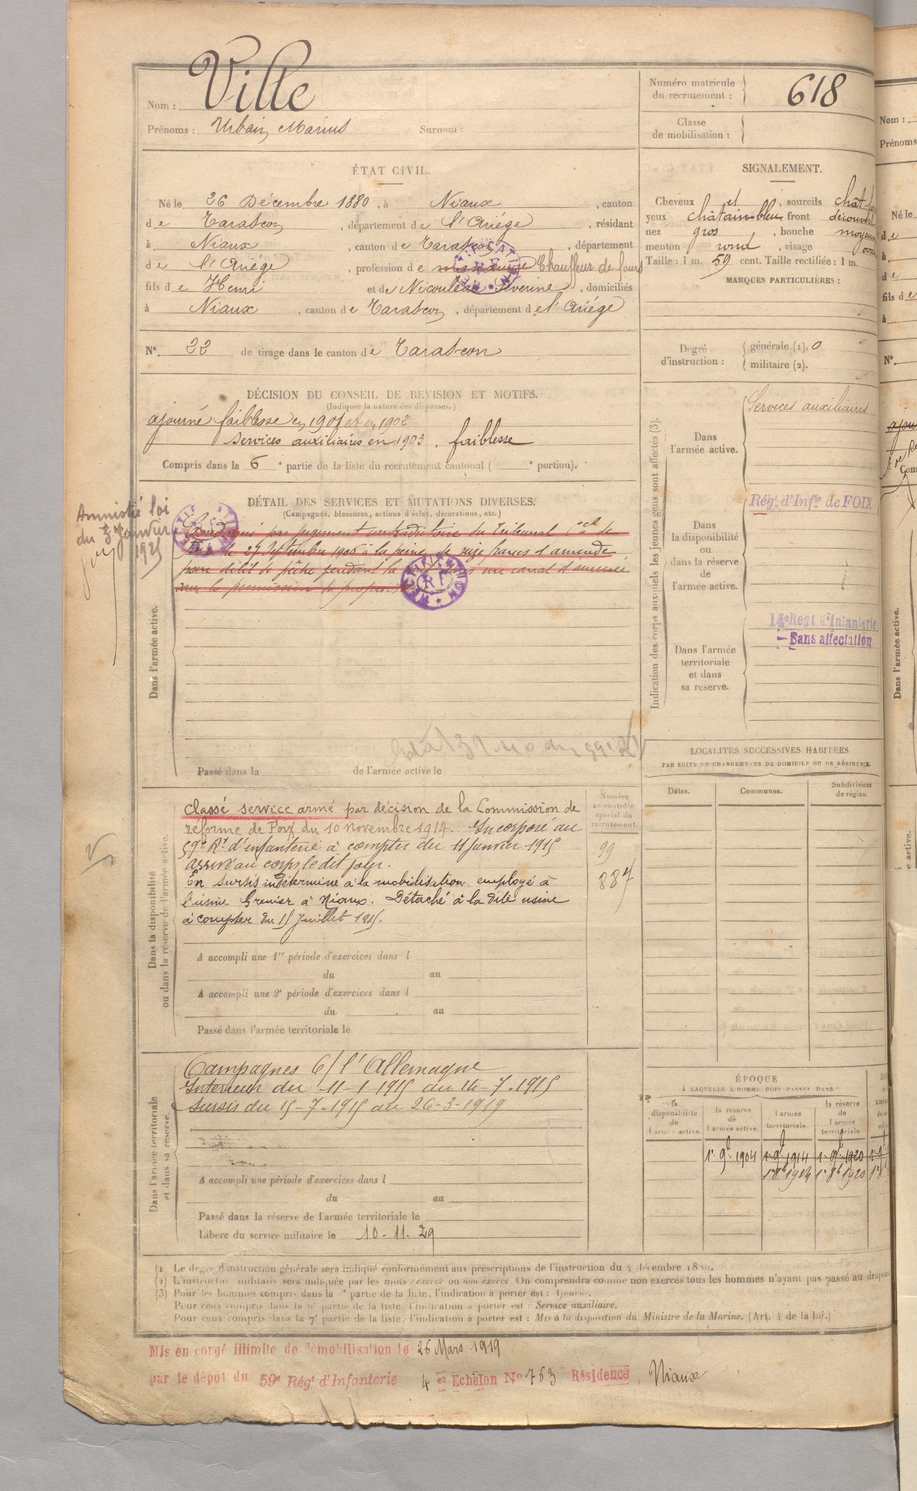 Nom : Ville
Prénoms : Urbain, Marius Surnom :
Numéro matricule du recrutement : 618
Classe de mobilisation :
ÉTAT CIVIL.
Né le 26 Décembre 1880, à Niaux, canton
de Tarascon, département de l'Ariége, résidant
à Niaux, canton de Tarascon, département
de l'Ariége, profession de Chauffeur de fours
fils de Henri et de, domiciliés
à Niaux, canton de Tarascon, département de l'Ariége
N° 22 de tirage dans le canton de Tarascon
SIGNALEMENT.
Cheveux et, sourcils chât
yeux châtain bleu front découvert
nez gros, bouche moyen
menton rond, visage
Taille : 1 m. 59 cent. Taille rectifiée : 1 m.
MARQUES PARTICULIÈRES :
Degré d'instruction : générale (1). 0
militaire (2).
DÉCISION DU CONSEIL DE REVISION ET MOTIFS.
(Indiquer la nature des dispenses.)
ajourné faiblesse en 1901 et en 1902
Services auxiliaires en 1903. faiblesse
Compris dans la 6e partie de la liste du recrutement cantonal ( e portion).
DÉTAIL DES SERVICES ET MUTATIONS DIVERSES.
(Campagnes, blessures, actions d'éclat, décorations, etc.)
Amnistié loi
du 3 Janvier
1925
Condamné par jugement contradictoire du Tribunal
le 27 Septembre 1906 à la peine de seize francs d'amende
pour délit de pêche pendant la un canal d'amenée
sans la permission
Dans l'armée active.
Passé dans la de l'armée active le
Indication des corps auxquels les jeunes gens sont affectés (3).
Dans l'armée active.
Services auxiliaires
Dans la disponibilité ou dans la réserve de l'armée active.
Rég. d'Inf<sup>ie</sup> de FOIX
Dans l'armée territoriale et dans sa réserve.
14e Régt d'Infanterie
Sans affectation
LOCALITÉS SUCCESSIVES HABITÉES
PAR SUITE DE CHANGEMENTS DE DOMICILE OU DE RÉSIDENCE.
Dates. Communes. Subdivision de région.
Dans la disponibilité ou dans la réserve de l'armée active.
Numéro au contrôle spécial du recrutement.
Classé service armé par décision de la Commission de
réforme de Foix du 10 novembre 1914. Incorporé au
59e Rt d'infanterie à compter du 11 Janvier 1915
Arrivé au corps le dit jour.
En sursis indéterminé à la mobilisation employé à
l'usine Grenier à Niaux. Détaché à la dite usine
à compter du 15 Juillet 1915.
99
887
A accompli une 1re période d'exercices dans l
du au
A accompli une 2e période d'exercices dans l
du au
Passé dans l'armée territoriale le
Dans l'armée territoriale et dans sa réserve.
Campagnes C/ l'Allemagne
Intérieur du 11-1-1915 au 14-7-1915
Sursis du 15-7-1915 au 26-3-1919
A accompli une période d'exercices dans l
du au
Passé dans la réserve de l'armée territoriale le
Libéré du service militaire le 10-11-29
ÉPOQUE
À LAQUELLE L'HOMME DOIT PASSER DANS
la disponibilité de l'armée active. la réserve de l'armée active. l'armée territoriale. la réserve de l'armée territoriale.
1er 9bre 1904 1er 9bre 1914 1er 9bre 1920
1er 8bre 1914 1er 8bre 1920
(1) Le degré d'instruction générale sera indiqué conformément aux prescriptions de l'instruction du 4 décembre
(2) L'instruction militaire sera indiquée par les mots exercé ou non exercé. On comprendra comme non exercés tous les hommes n'ayant pas passé au drapeau
(3) Pour les hommes compris dans la partie de la liste, l'indication à porter est :
Pour ceux compris dans la partie de la liste, l'indication à porter est : Service auxiliaire.
Pour ceux compris dans la 7e partie de la liste, l'indication à porter est : Mis à la disposition du Ministre de la Marine. (Art. 4 de la loi.)
Mis en congé illimité de démobilisation le 26 Mars 1919
par le dépôt du 59e Rég<sup>t</sup> d'Infanterie 4 er Echelon N° 763 Résidence, Niaux